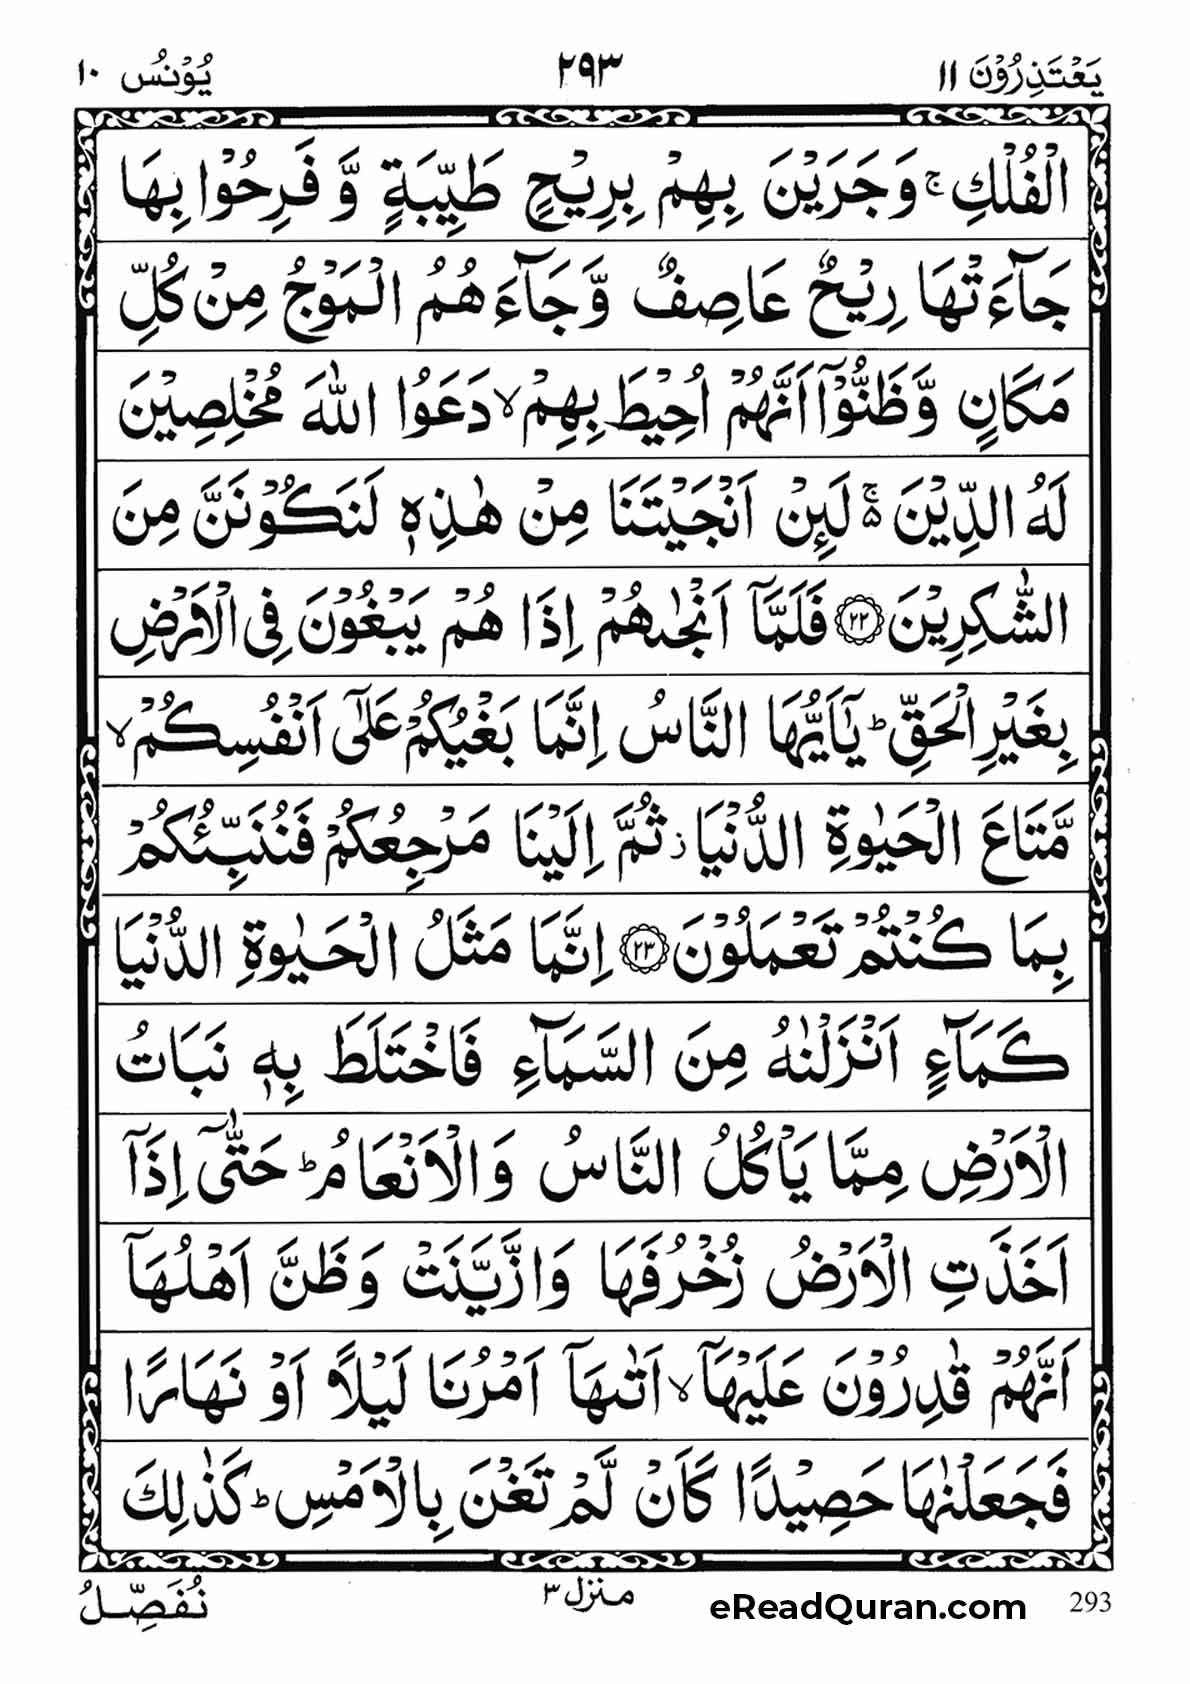 يَعْتَذِرُوْنَ ١١
٢٩٣
يُوْنُسُ ١٠
الْفُلْكِ ۚ وَجَرَيْنَ بِهِمْ بِرِيْحٍ طَيِّبَةٍ وَّ فَرِحُوْا بِهَا
جَآءَتْهَا رِيْحٌ عَاصِفٌ وَّجَآءَهُمُ الْمَوْجُ مِنْ كُلِّ
مَكَانٍ وَّظَنُّوْۤا اَنَّهُمْ اُحِيْطَ بِهِمْ ۙ دَعَوُا اللّٰهَ مُخْلِصِيْنَ
لَهُ الدِّيْنَ ۚ۬ لَئِنْ اَنْجَيْتَنَا مِنْ هٰذِهٖ لَنَكُوْنَنَّ مِنَ
الشّٰكِرِيْنَ ٢٢ فَلَمَّاۤ اَنْجٰىهُمْ اِذَا هُمْ يَبْغُوْنَ فِى الْاَرْضِ
بِغَيْرِ الْحَقِّ ؕ يٰۤاَيُّهَا النَّاسُ اِنَّمَا بَغْيُكُمْ عَلٰۤى اَنْفُسِكُمْ ۙ
مَّتَاعَ الْحَيٰوةِ الدُّنْيَا ز ثُمَّ اِلَيْنَا مَرْجِعُكُمْ فَنُنَبِّئُكُمْ
بِمَا كُنْتُمْ تَعْمَلُوْنَ ٢٣ اِنَّمَا مَثَلُ الْحَيٰوةِ الدُّنْيَا
كَمَآءٍ اَنْزَلْنٰهُ مِنَ السَّمَآءِ فَاخْتَلَطَ بِهٖ نَبَاتُ
الْاَرْضِ مِمَّا يَاْكُلُ النَّاسُ وَالْاَنْعَامُ ؕ حَتّٰۤى اِذَاۤ
اَخَذَتِ الْاَرْضُ زُخْرُفَهَا وَازَّيَّنَتْ وَظَنَّ اَهْلُهَاۤ
اَنَّهُمْ قٰدِرُوْنَ عَلَيْهَاۤ ۙ اَتٰىهَاۤ اَمْرُنَا لَيْلًا اَوْ نَهَارًا
فَجَعَلْنٰهَا حَصِيْدًا كَاَنْ لَّمْ تَغْنَ بِالْاَمْسِ ؕ كَذٰلِكَ
نُفَصِّلُ
منزل ٣
eReadQuran.com
293